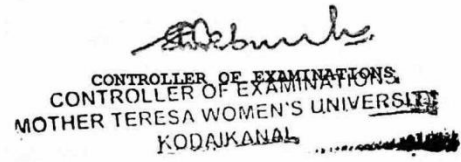 CONTROLLER OF EXAMINATIONS
CONTROLLER OF EXAMINATIONS
MOTHER TERESA WOMEN'S UNIVERSITY
KODAIKANAL